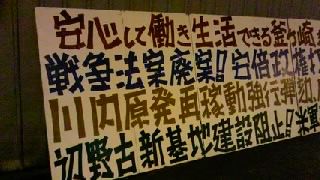 安心して働き生活できる釜ヶ崎を
戦争法案廃案!!安倍政権打
川内原発再稼動強行弾劾!
辺野古新基地建設阻止!!